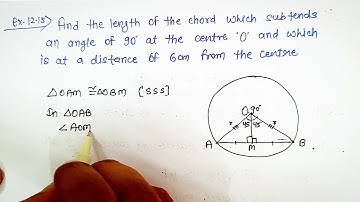 Ex. 12.15) Find the length of the chord which subtends
an angle of 90° at the centre 'O' and which
is at a distance of 6cm from the centre
△OAM ≅ △OBM [SSS]
In △OAB
∠AOM
O 90°
r 45 45 r
A M B